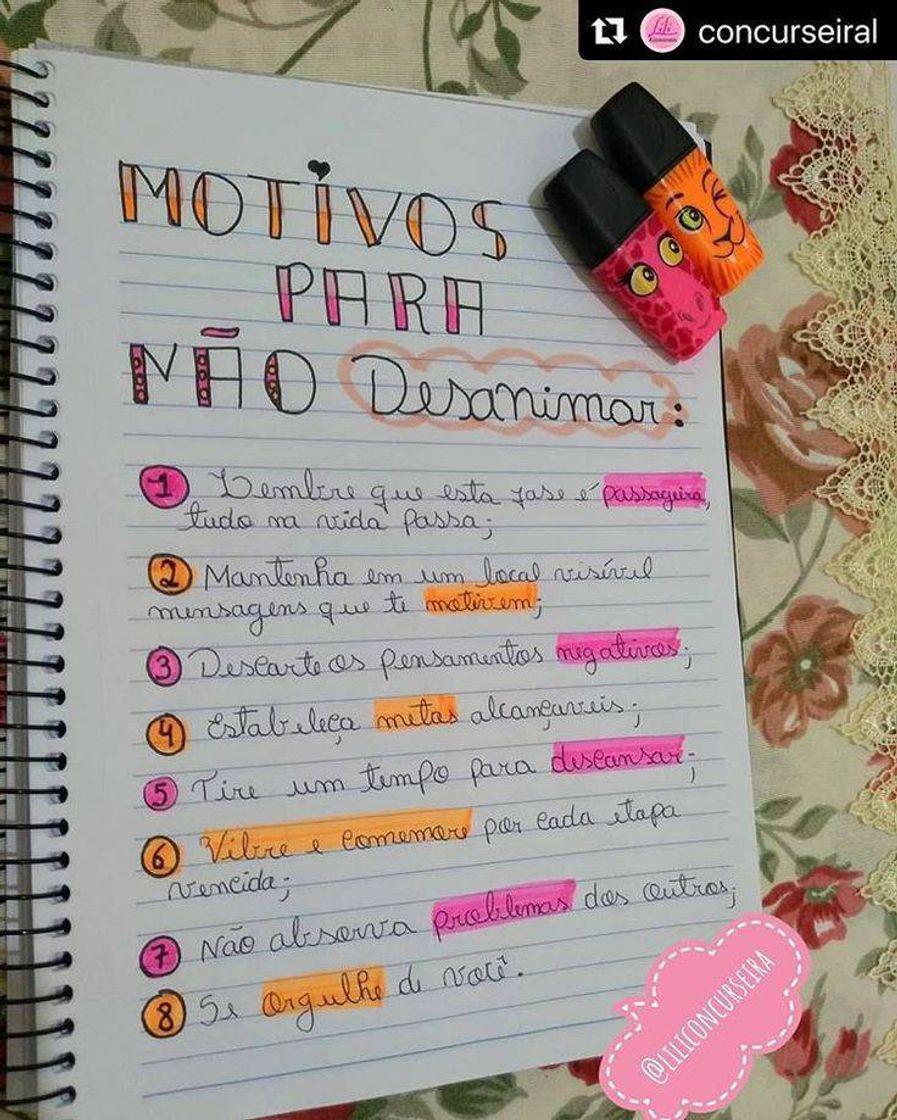 concurseiral
MOTIVOS
PARA
NÃO Desanimar:
1 Lembre que esta fase é passageira,
tudo na vida passa;
2 Mantenha em um local visível
mensagens que te motivem;
3 Descarte os pensamentos negativos;
4 Estabeleça metas alcançaveis;
5 Tire um tempo para descansar;
6 Vibre e comemore por cada etapa
vencida;
7 Não absorva problemas dos outros;
8 Se orgulhe de você.
@LILICONCURSEIRA